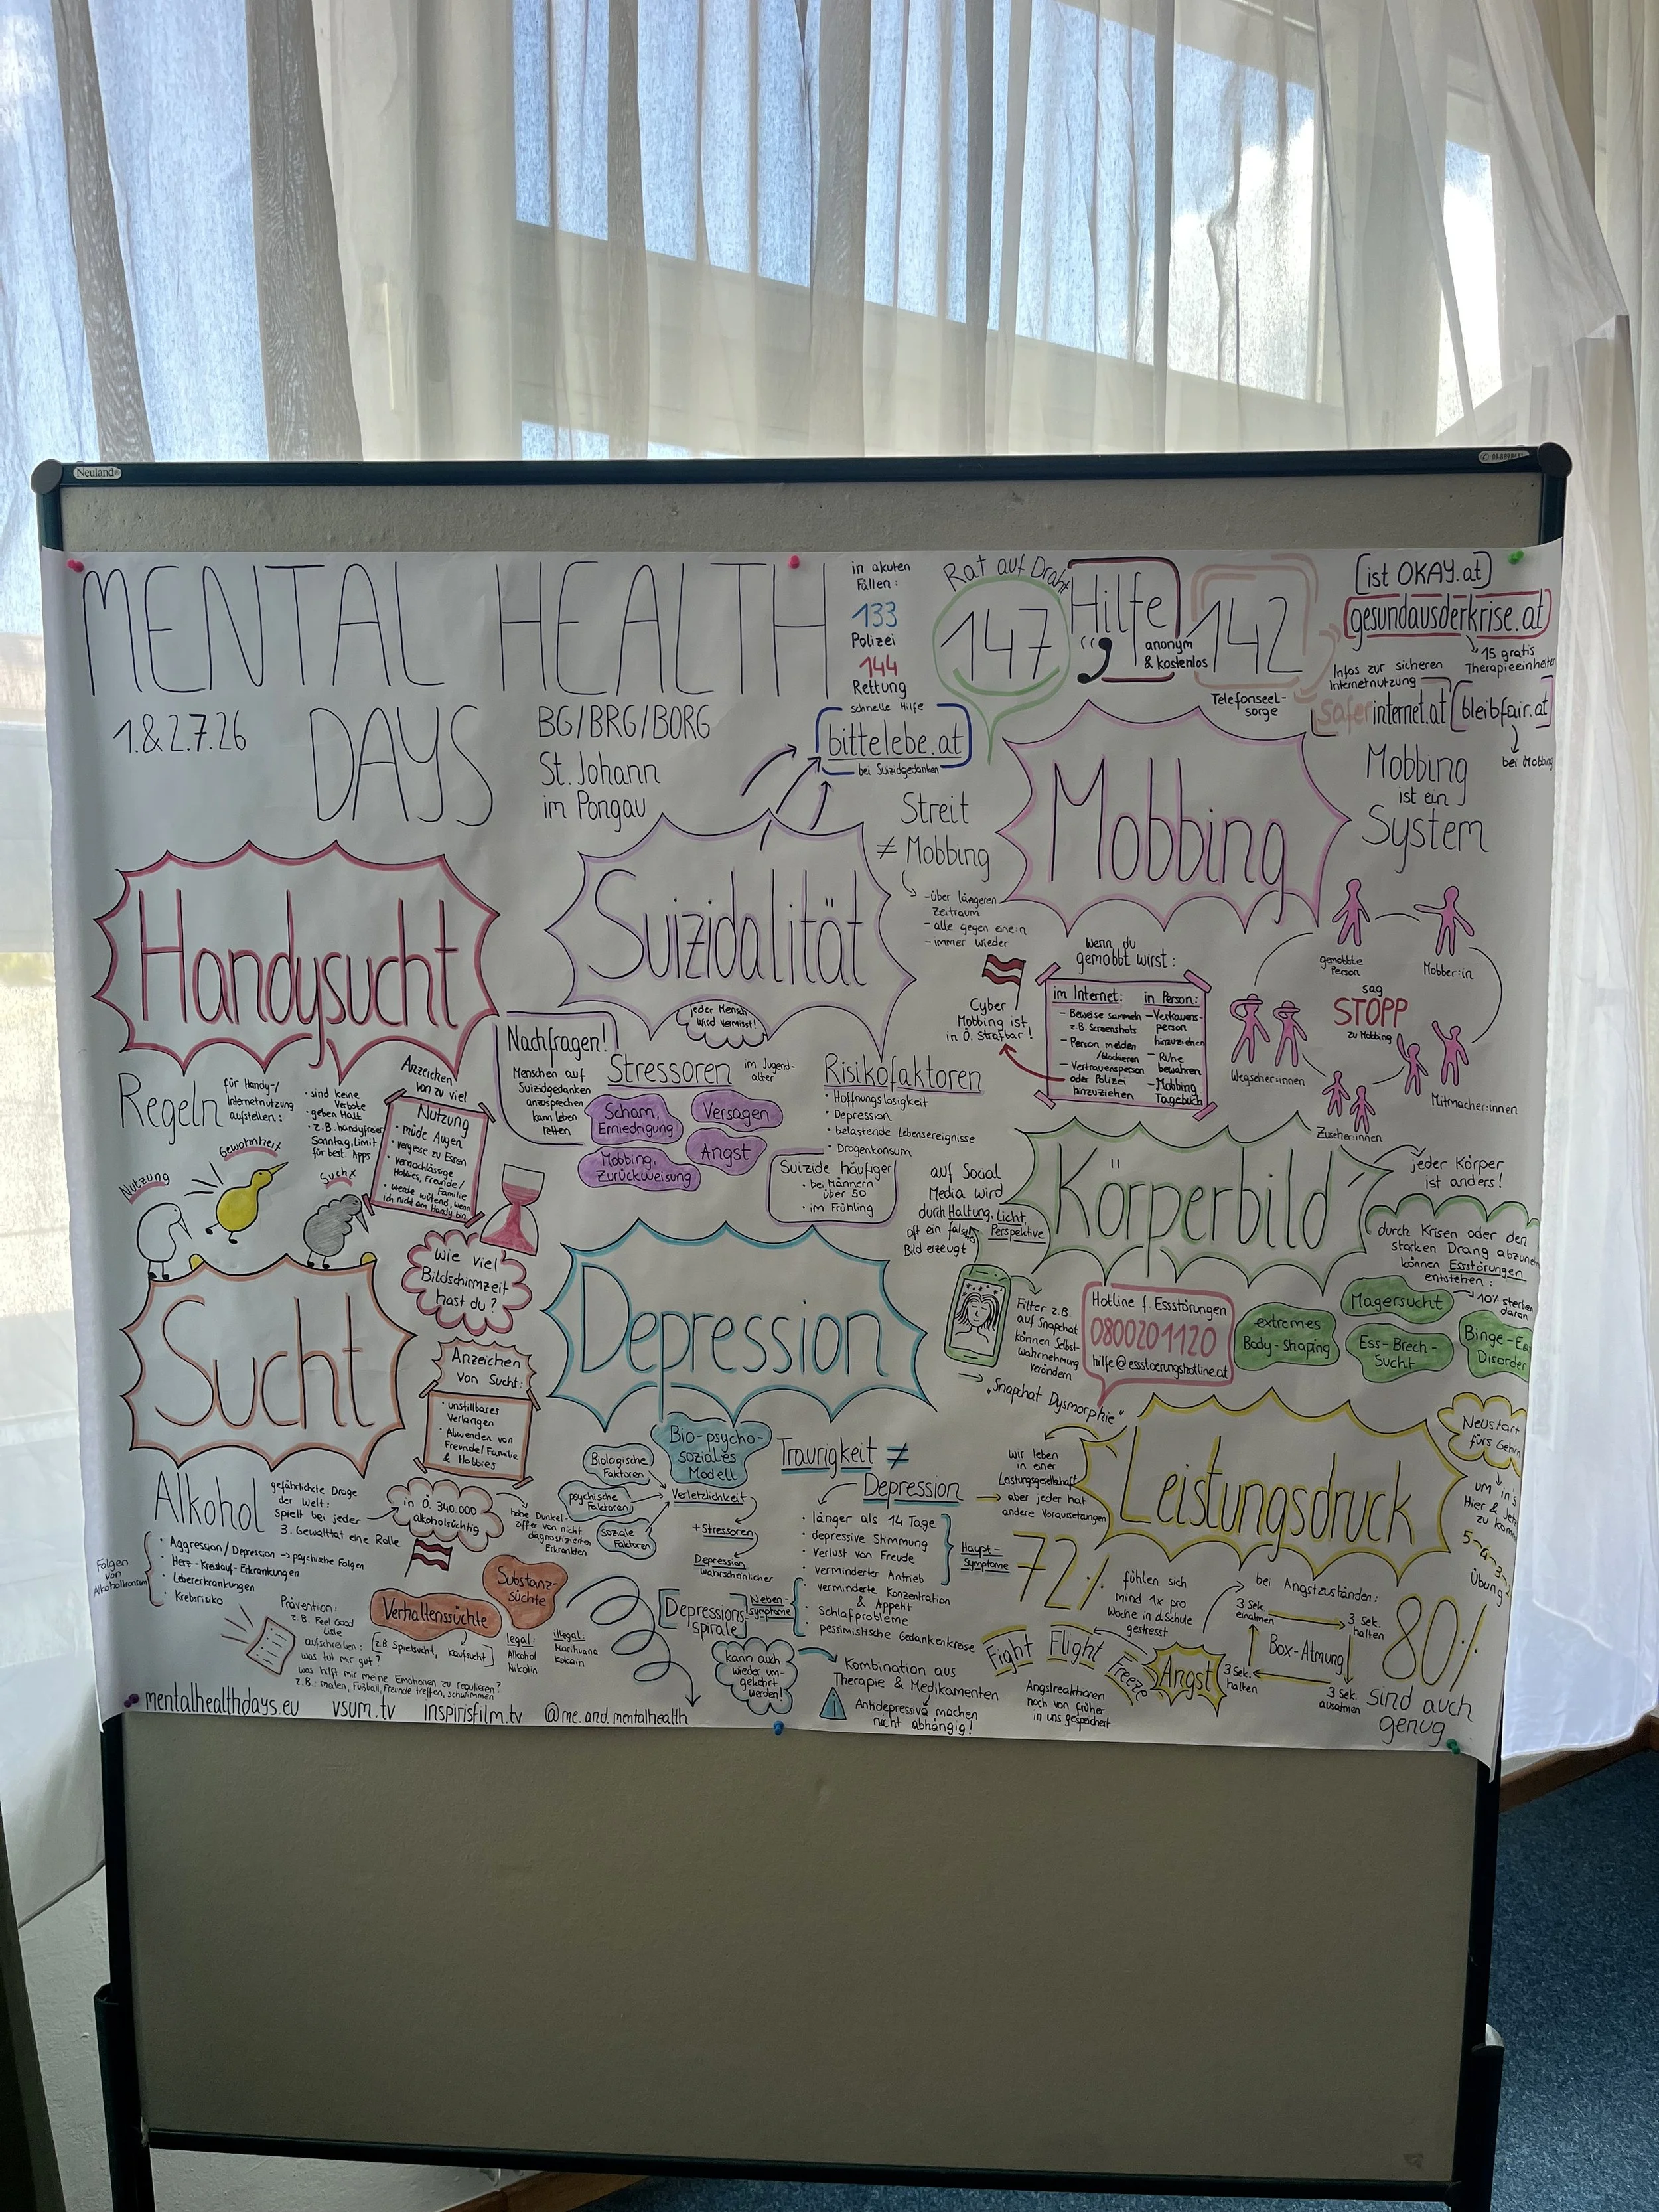 Neuland
MENTAL HEALTH
DAYS
1.&2.7.26
BG/BRG/BORG
St. Johann
im Pongau
in akuten
Fällen:
133
Polizei
144
Rettung
Rat auf Draht
147
Hilfe
anonym
& kostenlos
142
Telefonseel-
sorge
ist OKAY.at
gesundausderkrise.at
15 gratis
Therapieeinheiten
Infos zur sicheren
Internetnutzung
saferinternet.at
bleibfair.at
bei Mobbing
schnelle Hilfe
bittelebe.at
bei Suizidgedanken
Handysucht
Regeln
für Handy-/
Internetnutzung
aufstellen:
• sind keine
Verbote
• geben Halt
• z.B. handyfreier
Sonntag, Limit
für best. Apps
Anzeichen
von zu viel
Nutzung
• müde Augen
• vergesse zu Essen
• vernachlässige
Hobbies, Freunde/
Familie
• werde wütend, wenn
ich nicht am Handy bin
Nutzung
Gewohnheit
Sucht
Wie viel
Bildschirmzeit
hast du?
Suizidalität
jeder Mensch
wird vermisst!
Nachfragen!
Menschen auf
Suizidgedanken
anzusprechen
kann Leben
retten
Stressoren
im Jugend-
alter
Scham,
Erniedrigung
Versagen
Mobbing,
Zurückweisung
Angst
Risikofaktoren
• Hoffnungslosigkeit
• Depression
• belastende Lebensereignisse
• Drogenkonsum
Suizide häufiger
• bei Männern
über 50
• im Frühling
Streit
≠ Mobbing
- über längeren
Zeitraum
- alle gegen eine:n
- immer wieder
Mobbing
Mobbing
ist ein
System
Cyber
Mobbing ist
in Ö. strafbar!
Wenn du
gemobbt wirst:
im Internet:
- Beweise sammeln
z.B. Screenshots
- Person melden
/blockieren
- Vertrauensperson
oder Polizei
hinzuziehen
in Person:
- Vertrauens-
person
hinzuziehen
- Ruhe
bewahren
- Mobbing
Tagebuch
gemobbte
Person
Mobber:in
sag
STOPP
zu Mobbing
Wegseher:innen
Mitmacher:innen
Zuseher:innen
Körperbild
jeder Körper
ist anders!
auf Social
Media wird
durch Haltung, Licht,
Perspektive
oft ein falsches
Bild erzeugt
Filter z.B.
auf Snapchat
können Selbst-
wahrnehmung
verändern
→ "Snapchat Dysmorphie"
Hotline f. Essstörungen
0800201120
hilfe@essstoerungshotline.at
durch Krisen oder den
starken Drang abzunehmen
können Essstörungen
entstehen:
extremes
Body-Shaping
Magersucht
10% sterben
daran
Ess-Brech-
Sucht
Binge-Ea
Disorder
Sucht
Anzeichen
von Sucht:
• unstillbares
Verlangen
• Abwenden von
Freunde/Familie
& Hobbies
Alkohol
gefährlichste Droge
der Welt:
spielt bei jeder
3. Gewalttat eine Rolle
in Ö. 340.000
alkoholsüchtig
hohe Dunkel-
ziffer von nicht
diagnostizierten
Erkrankten
Folgen
von
Alkoholkonsum
• Aggression/Depression → psychische Folgen
• Herz-Kreislauf-Erkrankungen
• Lebererkrankungen
• Krebsrisiko
Prävention:
z.B. Feel Good
Liste
aufschreiben:
was tut mir gut?
was hilft mir meine Emotionen zu regulieren?
z.B.: malen, Fußball, Freunde treffen, schwimmen
Verhaltenssüchte
[z.B. Spielsucht, Kaufsucht]
Substanz-
süchte
legal:
Alkohol
Nikotin
illegal:
Marihuana
Kokain
Depression
Bio-psycho-
soziales
Modell
Biologische
Faktoren
psychische
Faktoren
soziale
Faktoren
Verletzlichkeit
+Stressoren
Depression
wahrscheinlicher
Traurigkeit ≠
Depression
• länger als 14 Tage
• depressive Stimmung
• Verlust von Freude
• verminderter Antrieb
Haupt-
symptome
Neben-
symptome
• verminderte Konzentration
& Appetit
• Schlafprobleme
• pessimistische Gedankenkreise
Depressions-
spirale
kann auch
wieder um-
gekehrt
werden!
Kombination aus
Therapie & Medikamenten
Antidepressiva machen
nicht abhängig!
Leistungsdruck
wir leben
in einer
Leistungsgesellschaft
→ aber jeder hat
andere Voraussetzungen
72%
fühlen sich
mind 1x pro
Woche in d. Schule
gestresst
Neustart
fürs Gehirn
um in's
Hier & Jetzt
zu kommen
5-4-3-
Übung
bei Angstzuständen:
3 Sek.
einatmen
3 Sek.
halten
Box-Atmung
3 Sek.
halten
3 Sek.
ausatmen
Fight
Flight
Freeze
Angst
Angstreaktionen
noch von früher
in uns gespeichert
80%
sind auch
genug
mentalhealthdays.eu
vsum.tv
inspirisfilm.tv
@me.and.mentalhealth